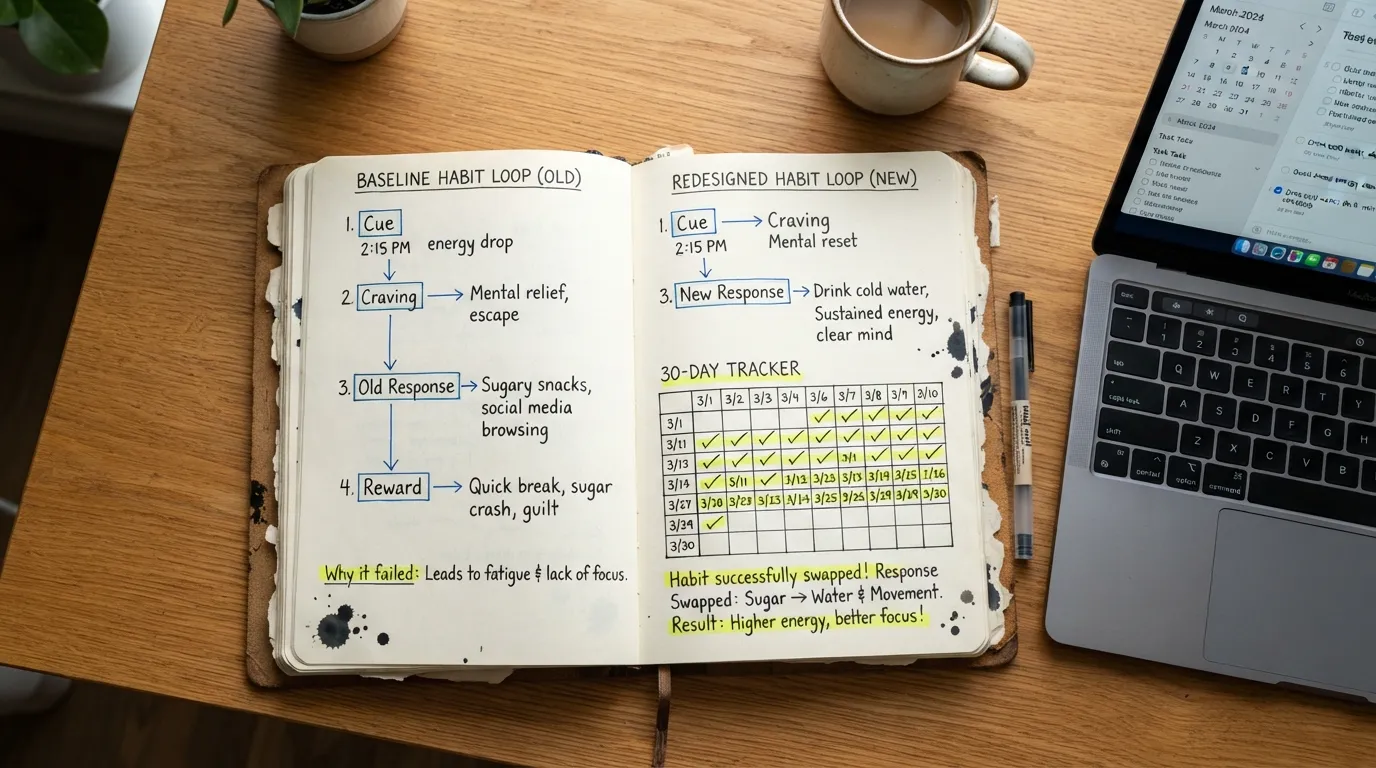 BASELINE HABIT LOOP (OLD)
1. Cue
2:15 PM energy drop
2. Craving → Mental relief,
escape
3. Old Response → Sugary snacks,
social media
browsing
4. Reward → Quick break, sugar
crash, guilt
Why it failed: Leads to fatigue & lack of focus.
REDESIGNED HABIT LOOP (NEW)
1. Cue → Craving
2:15 PM Mental reset
3. New Response → Drink cold water,
Sustained energy,
clear mind
30-DAY TRACKER
3/1 3/2 3/3 3/4 3/6 3/7 3/8 3/7 3/10
3/1 ✓ ✓ ✓ ✓ ✓
3/11 ✓ ✓ ✓ ✓ ✓ ✓ ✓ ✓ ✓
3/13 ✓ ✓ ✓ ✓ ✓ 3/1 ✓ ✓ ✓
3/14 ✓ 5/11 ✓ 3/12 3/23 3/13 3/14 3/15 1/16
3/27 3/20 3/23 3/13 3/14 3/25 9/25 3/29 3/19 3/30
3/34 ✓
3/30
Habit successfully swapped! Response
Swapped: Sugar → Water & Movement.
Result: Higher energy, better focus!
March 2024
esc
Q W E R T Y
A S D F G H
Z X C V B
shift
control option command